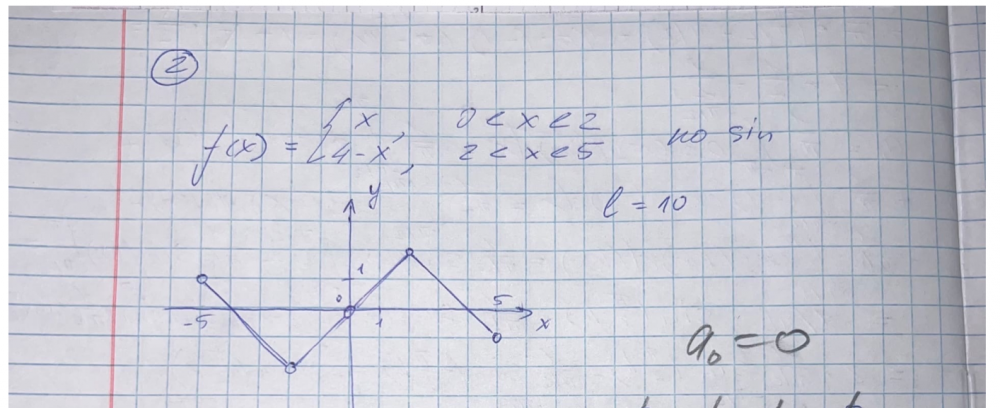 2
f(x) = { x, 0 < x < 2
4-x, 2 < x < 5
по sin
l = 10
y
1
0
-5
1
5
x
a₀ = 0